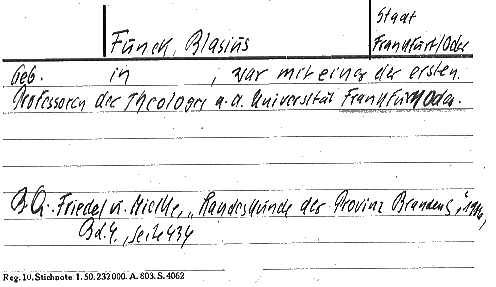 Staat
Funck, Blasius
Frankfurt/Oder
Geb. in , war mit einer der ersten
Professoren der Theologie a.d. Universität Frankfurt/Oder.
B.Q. Friedel u. Mielke, „Landeskunde der Provinz Brandenb.",
Bd.4, Seite 434
Reg. 10. Stichnote 1. 50. 232000. A. 803. S. 4062